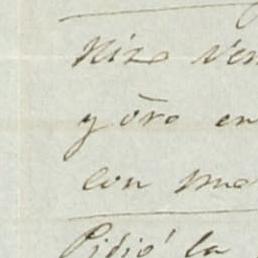 Hizo ven
y ōro en
con me
Pidió la